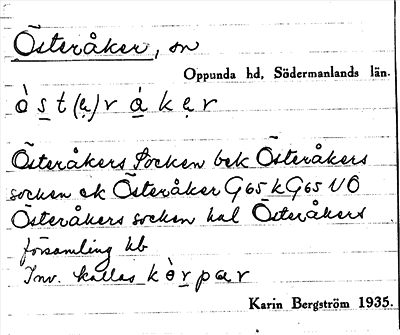 Österåker, sn
Oppunda hd, Södermanlands län.
ö̀ s̲ t (ḙ) r á̲ k ḙ r
Österåkers Socken bek Österåkers
socken ek Österåker G65 k G65 VÖ
Österåkers socken kal Österåkers
församling kb
Inv. kallas k ö̀ r̲ p a r
Karin Bergström 1935.